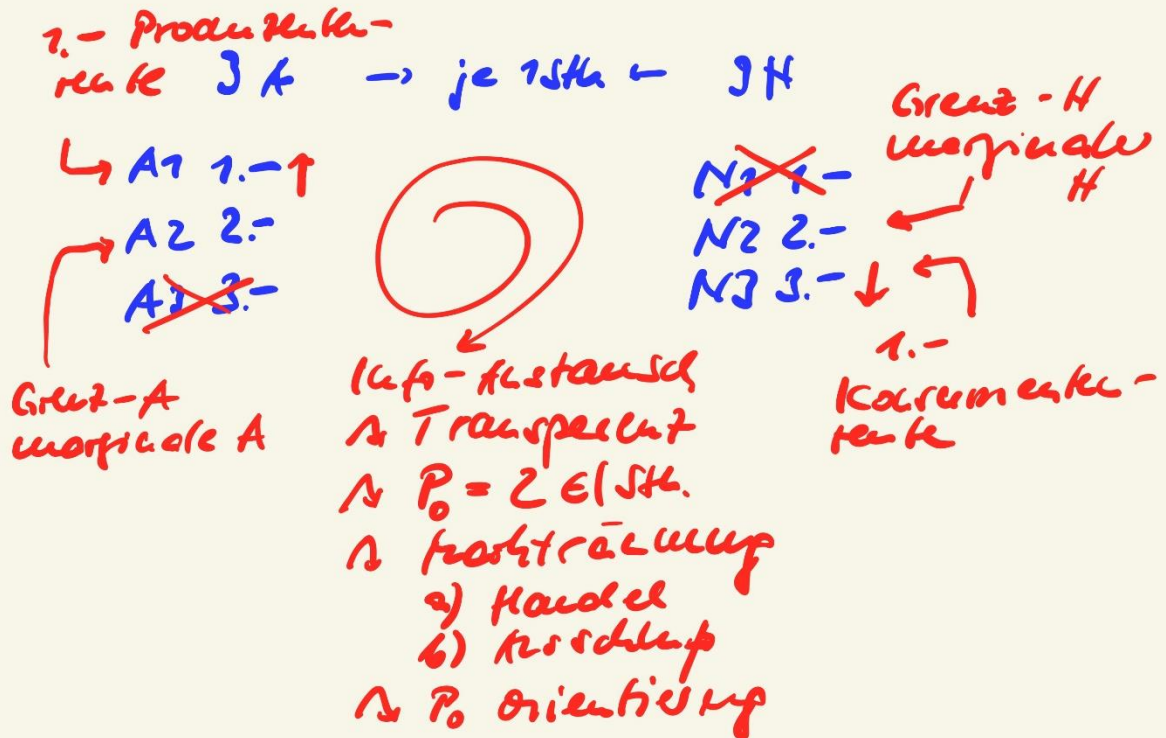 1.- Produzenten-
rente 3 A → je 1 Stk ← 3 N
Grenz-N
marginaler
N
↳ A1 1.- ↑
A2 2.-
A3 3.-
N1 1.-
N2 2.-
N3 3.-
Grenz-A
marginale A
1.-
Konsumenten-
rente
Info-Austausch
↳ Transparenz
↳ P₀ = 2 €/Stk.
↳ Markträumung
a) Handel
b) Ausschluß
↳ P₀ orientierung